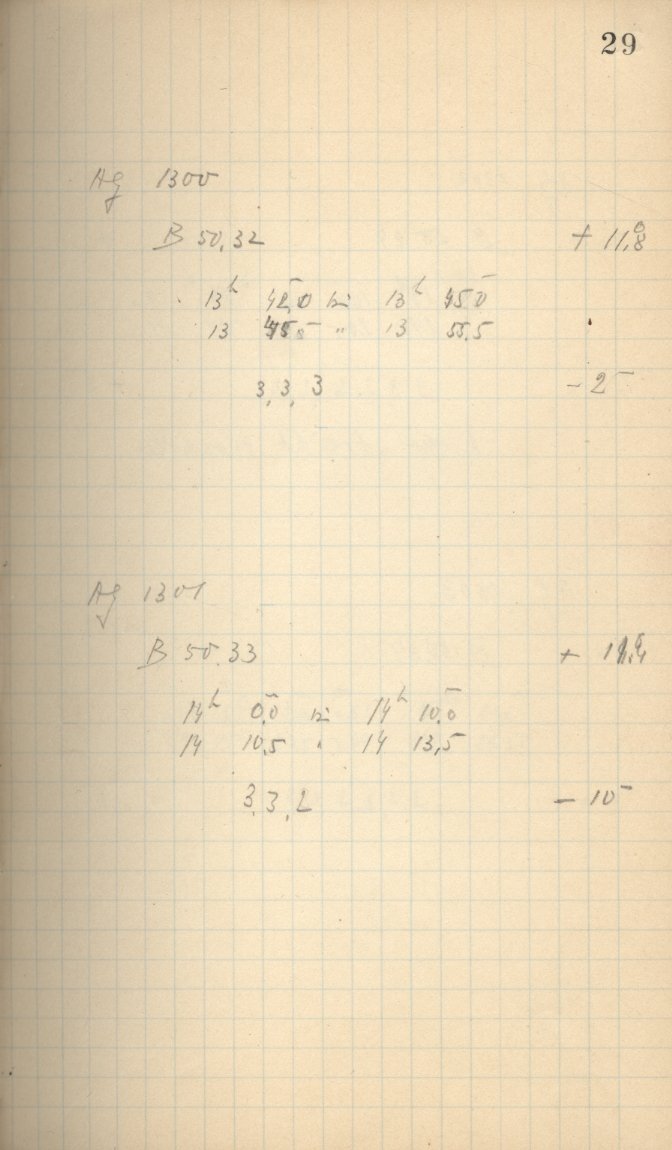 29
Ag 1300
B 50.32 + 11.8
13h 42.0 bis 13h 45.0
13 45.5 " 13 55.5
3, 3, 3 - 2
Ag 1301
B 50.33 +
14h 0.0 bis 14h 10.0
14 10.5 " 14 13,5
3, 3, 2 - 10